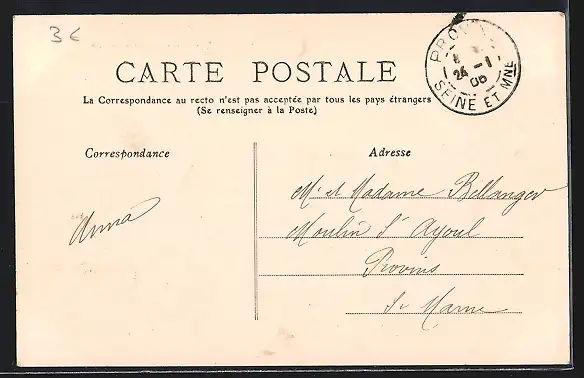 3€
CARTE POSTALE
La Correspondance au recto n'est pas acceptée par tous les pays étrangers
(Se renseigner à la Poste)
PROVINS
24 -1
06
SEINE ET MNE
Correspondance
Adresse
Anna
Mr et Madame Bellanger
Moulin St Ayoul
Provins
S. Marne